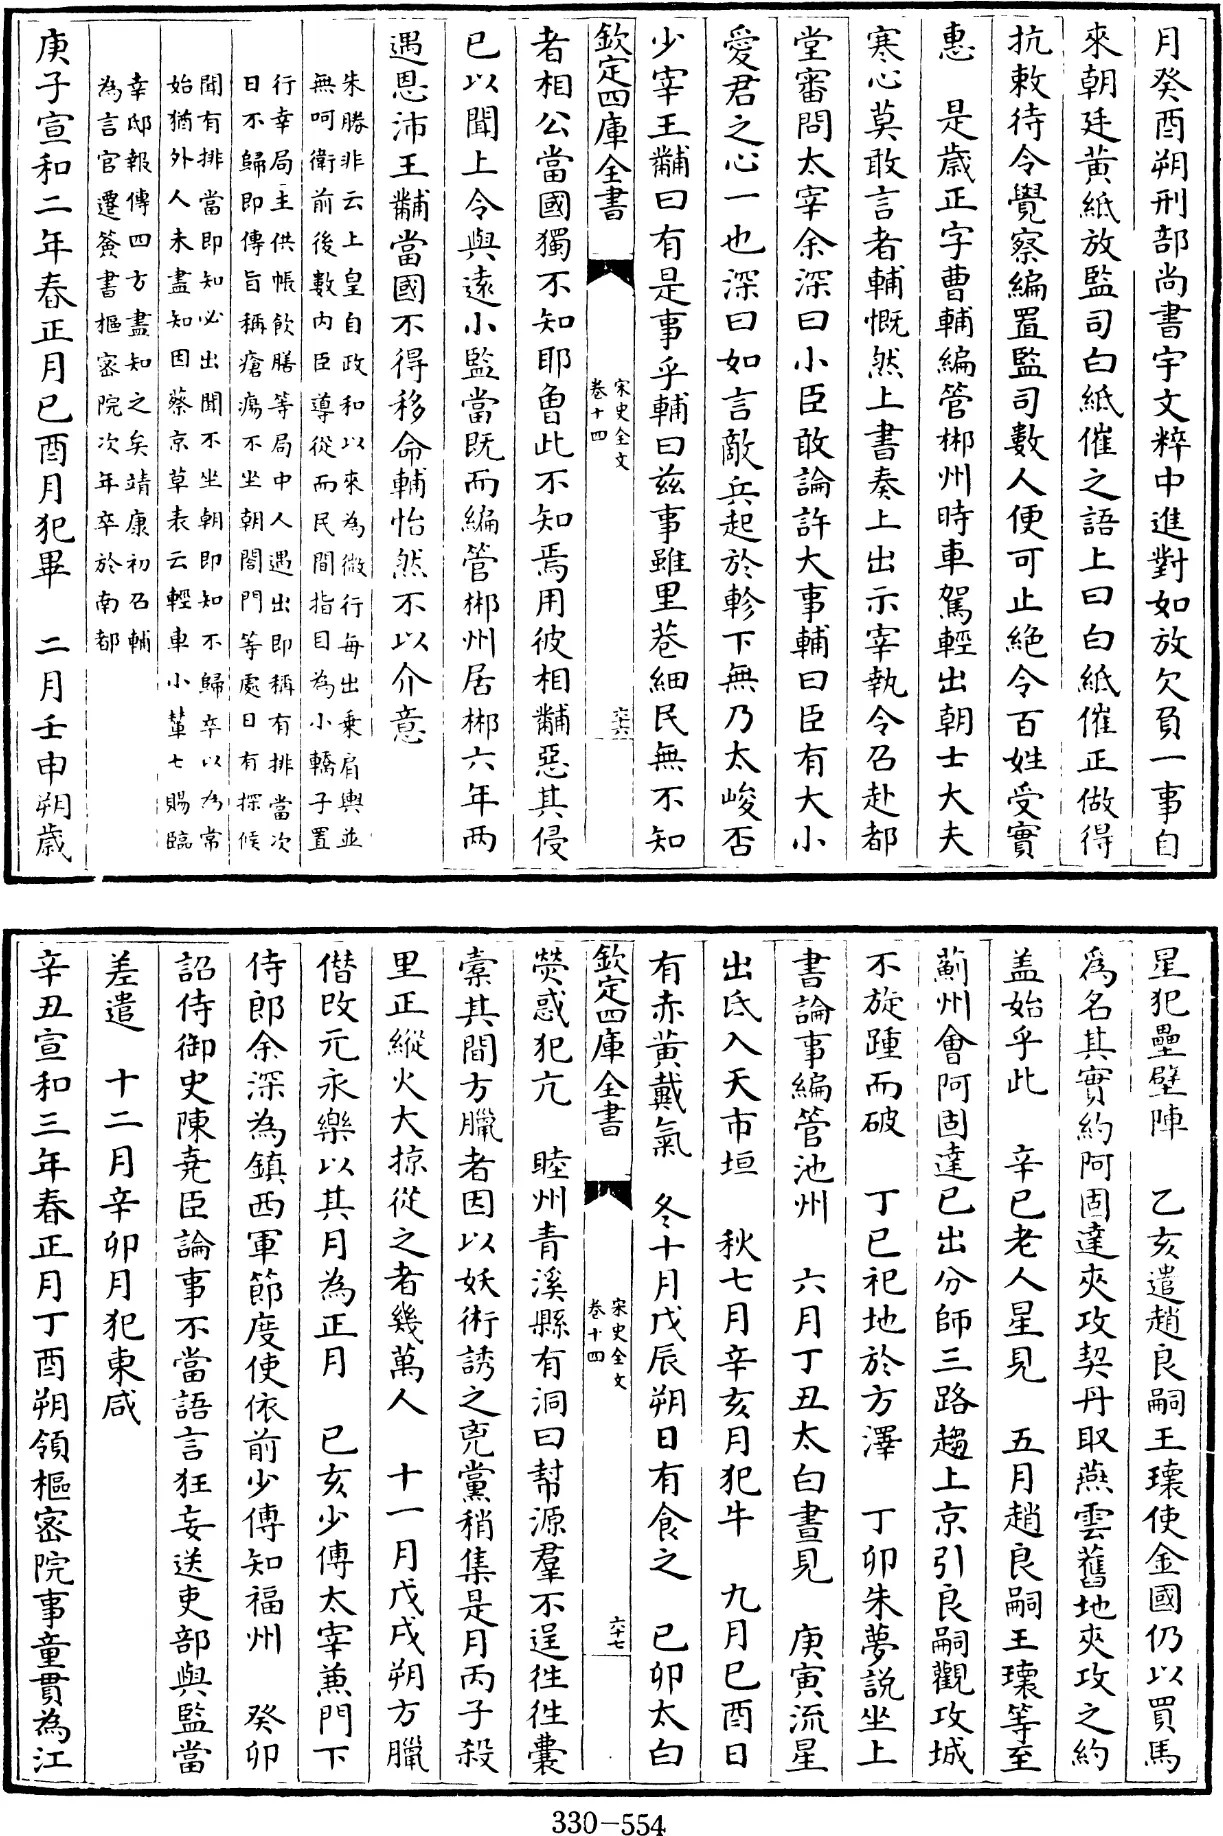 月癸酉朔刑部尚書宇文粹中進對如放欠負一事自
來朝廷黄紙放監司白紙催之語上曰白紙催正做得
抗敕待令覺察編置監司數人便可止絶令百姓受實
惠　是歳正字曹輔編管郴州時車駕輕出朝士大夫
寒心莫敢言者輔慨然上書奏上出示宰執令召赴都
堂審問太宰余深曰小臣敢論許大事輔曰臣有大小
愛君之心一也深曰如言敵兵起於軫下無乃太峻否
少宰王黼曰有是事乎輔曰兹事雖里巷細民無不知
欽定四庫全書　宋史全文　卷十四　六十六
者相公當國獨不知耶曾此不知焉用彼相黼惡其侵
已以聞上令與遠小監當既而編管郴州居郴六年兩
遇恩沛王黼當國不得移命輔怡然不以介意
朱勝非云上皇自政和以來為微行每出乗肩輿並
無呵衛前後數内臣導從而民間指目為小轎子置
行幸局主供帳飲膳等局中人遇出即稱有排當次
日不歸即傳旨稱瘡瘍不坐朝閤門等處日有探候
聞有排當即知必出聞不坐朝即知不歸卒以為常
始猶外人未盡知因蔡京草表云輕車小輦七賜臨
幸邸報傳四方盡知之矣靖康初召輔
為言官遷簽書樞密院次年卒於南都
庚子宣和二年春正月己酉月犯畢　二月壬申朔歳
星犯壘壁陣　乙亥遣趙良嗣王瓌使金國仍以買馬
爲名其實約阿固達夾攻契丹取燕雲舊地夾攻之約
盖始乎此　辛巳老人星見　五月趙良嗣王瓌等至
薊州會阿固達已出分師三路趨上京引良嗣觀攻城
不旋踵而破　丁巳祀地於方澤　丁卯朱夢說坐上
書論事編管池州　六月丁丑太白晝見　庚寅流星
出氐入天市垣　秋七月辛亥月犯牛　九月己酉日
有赤黄戴氣　冬十月戊辰朔日有食之　己卯太白
欽定四庫全書　宋史全文　卷十四　六十七
熒惑犯亢　睦州青溪縣有洞曰幫源羣不逞往往囊
橐其間方臘者因以妖術誘之兇黨稍集是月丙子殺
里正縱火大掠從之者幾萬人　十一月戊戌朔方臘
僣改元永樂以其月為正月　己亥少傅太宰兼門下
侍郎余深為鎮西軍節度使依前少傅知福州　癸卯
詔侍御史陳堯臣論事不當語言狂妄送吏部與監當
差遣　十二月辛卯月犯東咸
辛丑宣和三年春正月丁酉朔領樞密院事童貫為江
330-554